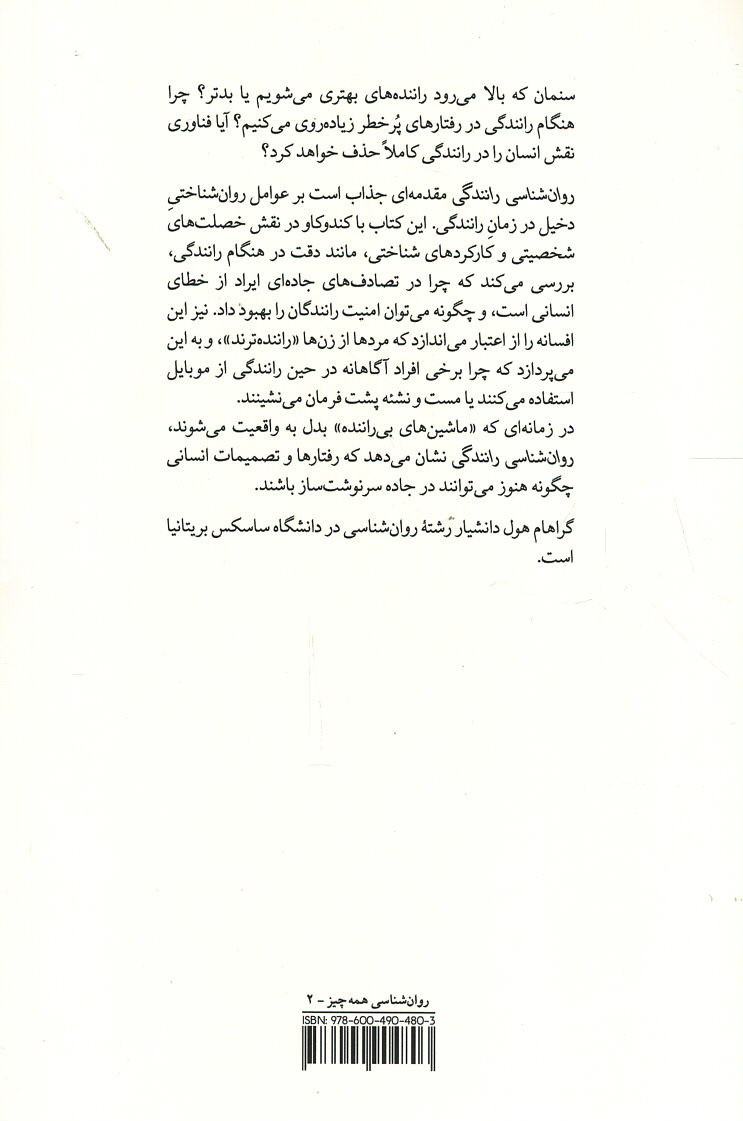 سنمان که بالا می‌رود راننده‌های بهتری می‌شویم یا بدتر؟ چرا
هنگام رانندگی در رفتارهای پُرخطر زیاده‌روی می‌کنیم؟ آیا فناوری
نقش انسان را در رانندگی کاملاً حذف خواهد کرد؟
روان‌شناسی رانندگی مقدمه‌ای جذاب است بر عوامل روان‌شناختیِ
دخیل در زمانِ رانندگی. این کتاب با کندوکاو در نقش خصلت‌های
شخصیتی و کارکردهای شناختی، مانند دقت در هنگام رانندگی،
بررسی می‌کند که چرا در تصادف‌های جاده‌ای ایراد از خطای
انسانی است، و چگونه می‌توان امنیت رانندگان را بهبود داد. نیز این
افسانه را از اعتبار می‌اندازد که مردها از زن‌ها «راننده‌ترند»، و به این
می‌پردازد که چرا برخی افراد آگاهانه در حین رانندگی از موبایل
استفاده می‌کنند یا مست و نشئه پشت فرمان می‌نشینند.
در زمانه‌ای که «ماشین‌های بی‌راننده» بدل به واقعیت می‌شوند،
روان‌شناسی رانندگی نشان می‌دهد که رفتارها و تصمیمات انسانی
چگونه هنوز می‌توانند در جاده سرنوشت‌ساز باشند.
گراهام هول دانشیار رشتهٔ روان‌شناسی در دانشگاه ساسکس بریتانیا
است.
روان‌شناسی همه‌چیز - ۲
ISBN: 978-600-490-480-3